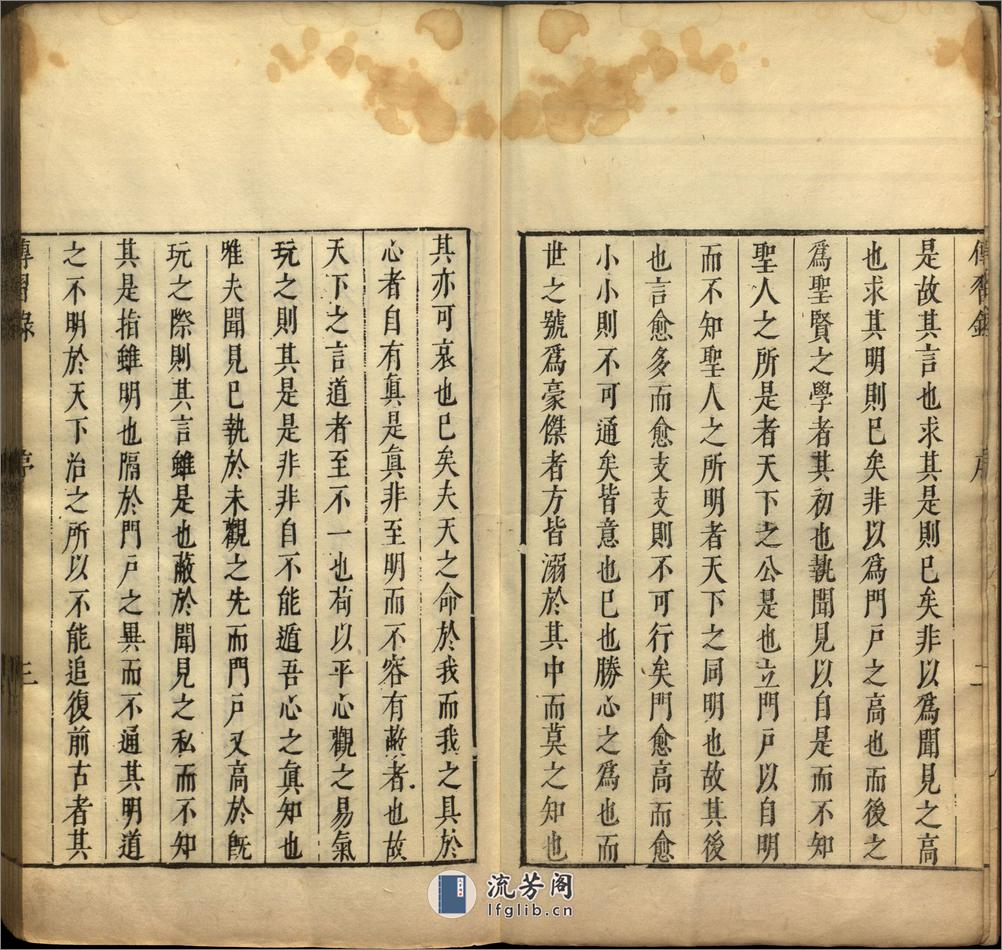 傳習錄 序 二
是故其言也求其是則已矣非以爲聞見之高
也求其明則已矣非以爲門戸之高也而後之
爲聖賢之學者其初也執聞見以自是而不知
聖人之所是者天下之公是也立門戸以自明
而不知聖人之所明者天下之同明也故其後
也言愈多而愈支支則不可行矣門愈高而愈
小小則不可通矣皆意也已也勝心之爲也而
世之號爲豪傑者方皆溺於其中而莫之知也
其亦可哀也已矣夫天之命於我而我之具於
心者自有眞是眞非至明而不容有蔽者也故
天下之言道者至不一也苟以平心觀之易氣
玩之則其是是非非自不能遁吾心之眞知也
惟夫聞見已執於未觀之先而門戸又高於旣
玩之際則其言雖是也蔽於聞見之私而不知
其是指雖明也隔於門戸之異而不通其明道
之不明於天下治之所以不能追復前古者其
傳習錄 序 三
流芳阁
lfglib.cn